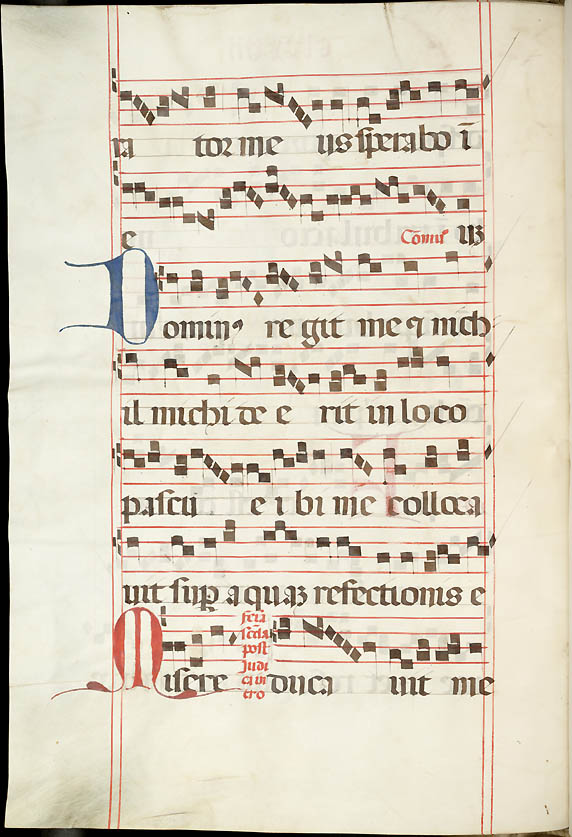 ra tor me us sperabo ī
e Cōmuō uꝫ
Dominꝰ re git me ⁊ nich
il michi de e rit in loco
pascu e i bi me colloca
uit suꝑ aquaꝫ refectionis e
Misere feria scda post Judica intro duca uit me